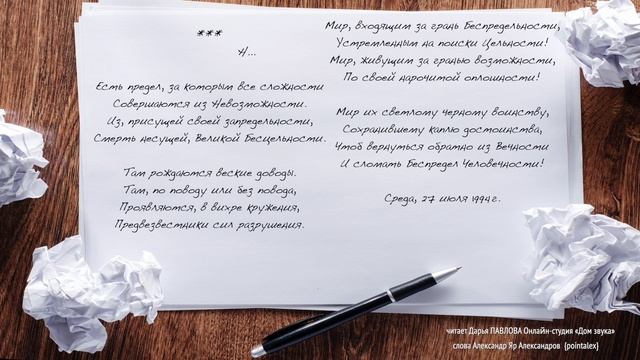 ***
Н...
Есть предел, за которым все сложности
Совершаются из Невозможности.
Из, присущей своей запредельности,
Смерть несущей, Великой Бесцельности.
Там рождаются веские доводы.
Там, по поводу или без повода,
Проявляются, в вихре кружения,
Предвезвестники сил разрушения.
Мир, входящим за грань Беспредельности,
Устремленным на поиски Цельности!
Мир, живущим за гранью возможности,
По своей нарочитой оплошности!
Мир их светлому черному воинству,
Сохранившему каплю достоинства,
Чтоб вернуться обратно из Вечности
И сломать Беспредел Человечности!
Среда, 27 июля 1994 г.
читает Дарья ПАВЛОВА Онлайн-студия «Дом звука»
слова Александр Яр Александров {pointalex}